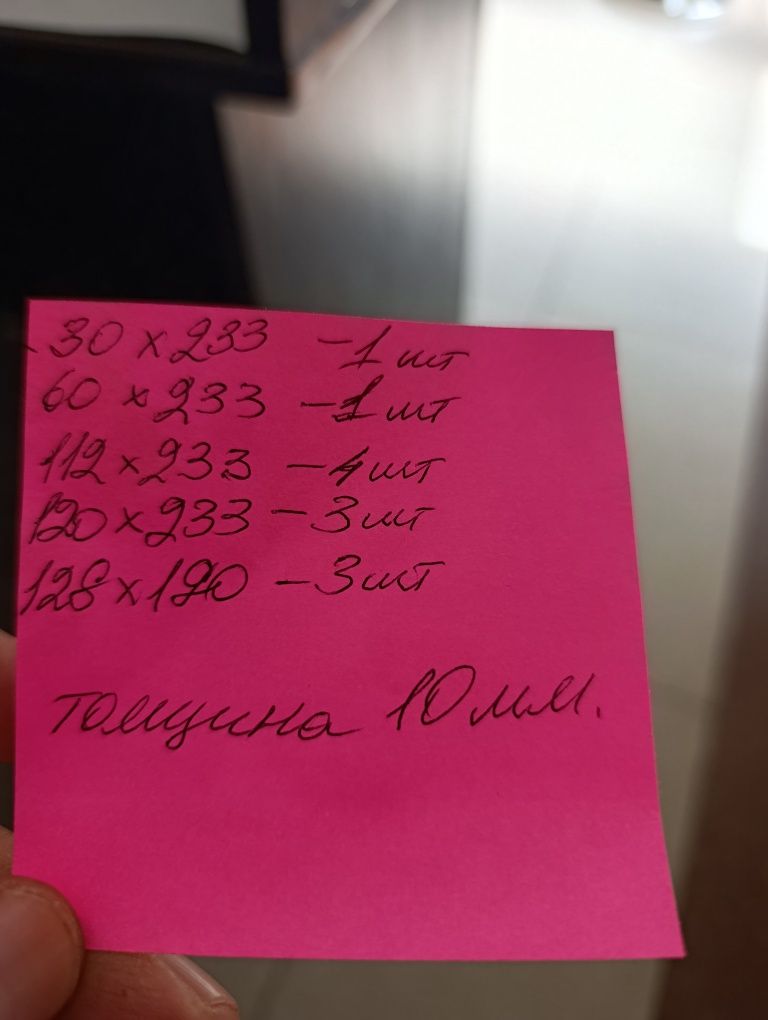 30 х 233 - 1 шт
60 х 233 - 1 шт
112 х 233 - 4 шт
120 х 233 - 3 шт
128 х 190 - 3 шт
толщина 10 мм.